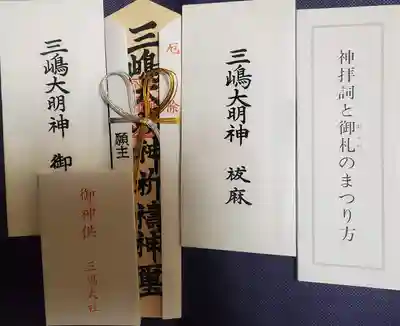 神拝詞と御札のまつり方
三嶋大明神 祓麻
厄
除
三嶋
神祈禱神璽
願主
三嶋大明神 御
御神供 三嶋大社